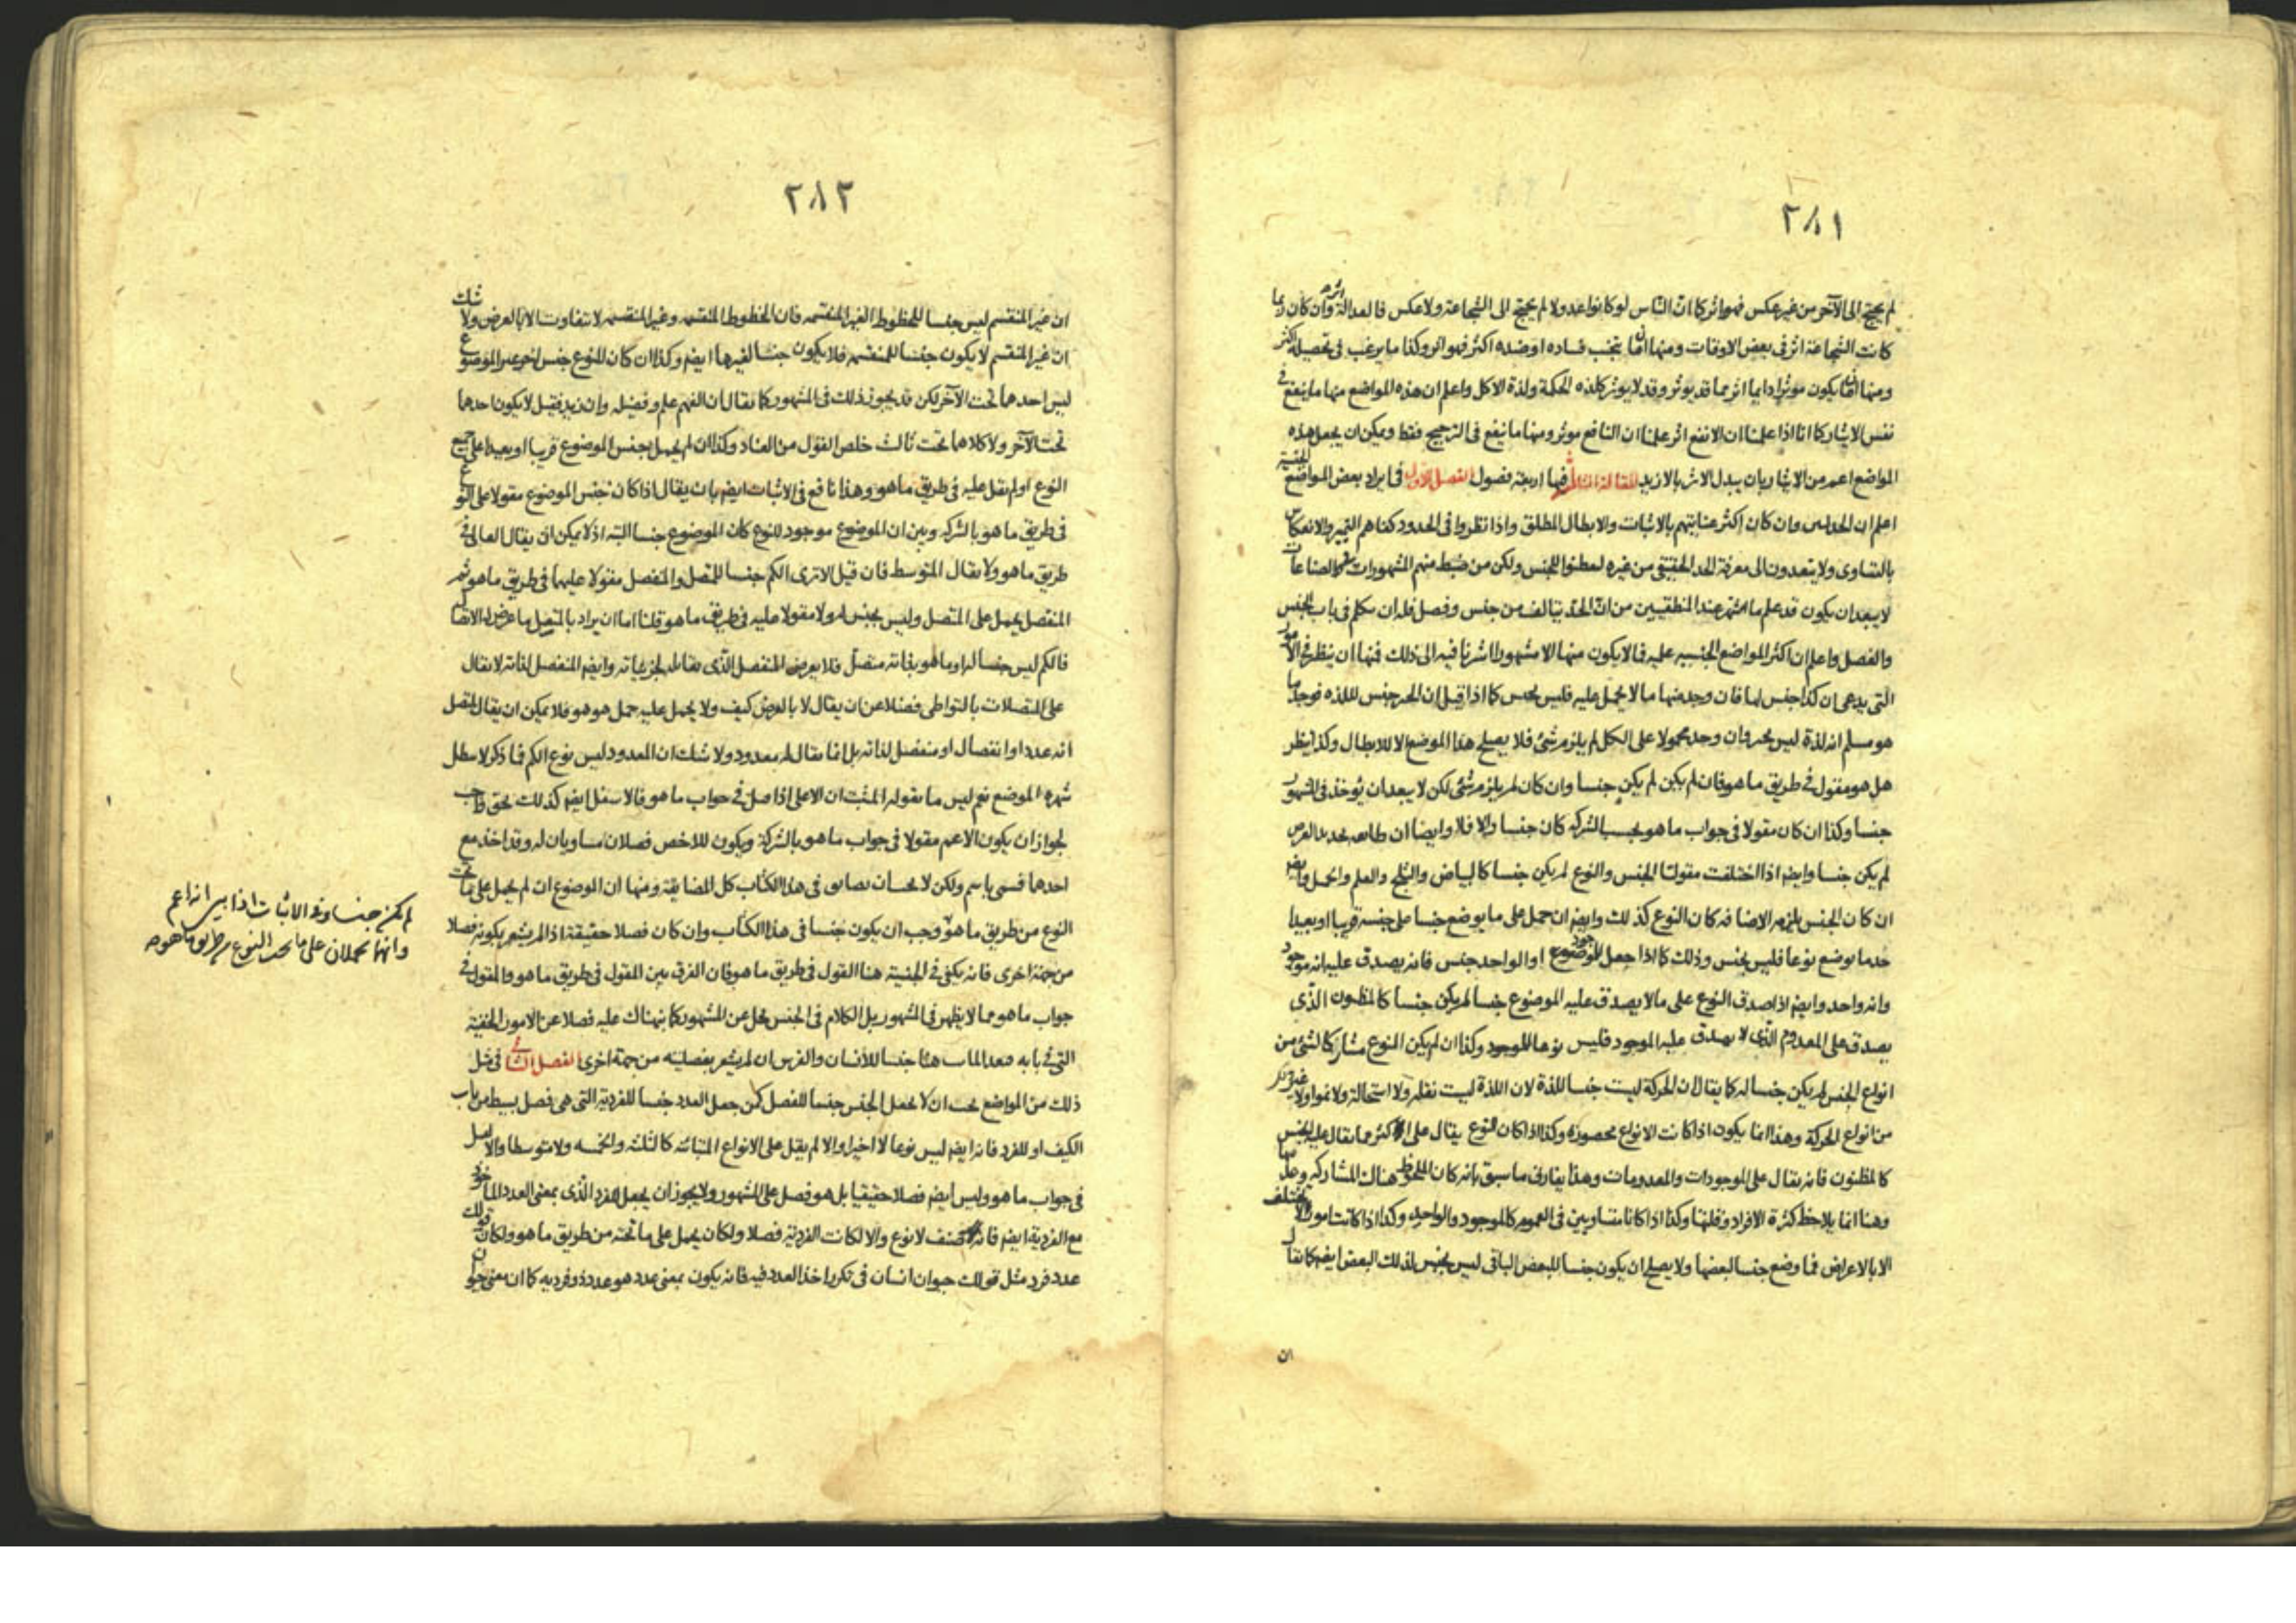 ٢٨١
لم يحتج الى الآخر من غير عكس فهو اثر كما انّ النّاس لو كانوا عدولا لم يحتج الى الشجاعة ولا عكس فالعدالة اثر وان كان ربما
كانت الشجاعة اثر فى بعض الاوقات ومنها ان ما يتجنب فساده او ضده اكثر فهو اثر وكذا ما يرغب فى تحصيله اكثر
ومنها ان ما يكون موثرا دايما اثر مما قد يوثر وقد لا يوثر كلذه الحكمة ولذة الاكل واعلم ان هذه المواضع منها ما ينفع فى
نفس الايثار كما انا اذا علمنا ان الانفع اثر علمنا ان النافع موثر ومنها ما ينفع فى الترجيح فقط ويمكن ان يجعل هذه
المواضع اعم من الايثار بان يبدل الاثر بالازيد المقالة الثالثة فيها اربعة فصول الفصل الاول فى ايراد بعض المواضع الجنسية
اعلم ان الجدليين وان كان اكثر عنايتهم بالاثبات والابطال المطلق واذا نظروا فى الحدود كفاهم التميز والانعكاس
بالتساوى ولا يتعدون الى معرفة الحد الحقيقى من غيره لعطفوا للجنس ولكن من ضبط منهم المشهورات الصناعات
لا يبعد ان يكون قد علم ما اشتهر عند المنطقيين من انّ الحدّ يتالف من جنس وفصل فله ان يتكلم فى باب الجنس
والفصل واعلم ان اكثر المواضع الجنسيه عليه فما لا يكون منها الا مشهورا اشرنا فيه الى ذلك فمنها ان ينظر فى الامور
التى يدعى ان كذا جنس لها فان وجد منها ما لا يحمل عليه فليس بجنس كما اذا قيل ان الحر جنس للذه فوجد ما
هو مسلم انه لذة ليس بحر وان وجد محمولا على الكل لم يلزم شئ فلا يصلح هذا الموضع الا للابطال وكذا ينظر
هل هو مقول فى طريق ما هو فان لم يكن لم يكن جنسا وان كان لم يلزم شئ لكن لا يبعد ان يوخذ فى المشهور
جنسا وكذا ان كان مقولا فى جواب ما هو بحسب الشركه كان جنسا والا فلا وايضا ان طابقه تحديد العرض
لم يكن جنسا وايضم اذا اختلفت مقولتا الجنس والنوع لم يكن جنسا كالبياض والثلج والعلم والحمل وايضم
ان كان الجنس يلزمه الاضافه كان النوع كذلك وايضم ان حمل على ما يوضع جنسا على جنسه قريبا او بعيدا
حد ما يوضع نوعا فليس بجنس وذلك كما اذا جعل الموضوع او الواحد جنس فانه يصدق عليه انه موجود
وانه واحد وايضم اذا صدق النوع على ما لا يصدق عليه الموضوع جنسا لم يكن جنسا كالمظنون الذّى
يصدق على المعدوم الذّى لا يصدق عليه الموجود فليس نوعا للموجود وكذا ان لم يكن النوع مشاركا لشئ من
انواع الجنس لم يكن جنسا له كما يقال ان الحركة ليست جنسا للذة لان اللذة ليست نقله ولا استحالة ولا نموا ولا غير ذلك
من انواع الحركة وهذا انما يكون اذا كانت الانواع محصوره وكذا اذا كان النوع يقال على اكثر مما يقال عليه الجنس
كالمظنون فانه يقال على الموجودات والمعدومات وهذا يفارق ما سبق بانه كان الملحوظ هناك المشاركه
وهنا انما يلاحظ كثرة الافراد وقلتها وكذا اذا كانا متساويين فى العموم كالموجود والواحد وكذا اذا كانت امور لا تختلف
الا بالاعراض فما وضع جنسا لبعضها ولا يصلح ان يكون جنسا للبعض الباقى ليس بجنس لذلك البعض ايضم كما يقال
ان
٢٨٢
ان غير المنقسم ليس جنسا للخطوط الغير المنقسمه فان الخطوط المنقسمه وغير المنقسمه لا تتفاوت الا بالعرض ولا شك
ان غير المنقسم لا يكون جنسا للمنقسمه فلا يكون جنسا لغيرها ايضم وكذا ان كان للنوع جنس اخر غير الموضوع
ليس احدهما تحت الآخر لكن قد يجوز ذلك فى المشهور كما يقال ان الفهم علم وفضيله وان زيد فقيل لا يكون احدهما
تحت الآخر ولا كلاهما تحت ثالث خلص القول من العناد وكذا ان لم يحمل جنس الموضوع قريبا او بعيدا على جميع
النوع او لم يقل عليه فى طريق ما هو وهذا نافع فى الاثبات ايضم بان يقال اذا كان جنس الموضوع مقولا على النوع
فى طريق ما هو بالشركه وبين ان الموضوع موجود للنوع كان الموضوع جنسا البته اذ لا يمكن ان يقال العالى فى
طريق ما هو ولا يقال المتوسط فان قيل الا ترى الكم جنسا للمتصل والمنفصل مقولا عليهما فى طريق ما هو ثم
المنفصل يحمل على المتصل وليس بجنس له ولا مقولا عليه فى طريق ما هو قلنا اما ان يراد بالمتصل ما عرض له الاتصال
فالكم ليس جنسا له او ما هو بذاته متصل فلا يعرض المنفصل الذّى يقابله لجزئياته وايضم المنفصل لذاته لا يقال
على المتصلات بالتواطى فضلا عن ان يقال لا بالعرض كيف ولا يحمل عليه حمل هو هو فلا يمكن ان يقال المتصل
انه عدد او انفصال او منفصل لذاته بل انما يقال له معدود ولا شك ان المعدود ليس نوع الكم فما ذكر لا يبطل
شهره الموضع نعم ليس ما يقوله المثبت ان الاعلى اذا حمل فى جواب ما هو فالاسفل ايضم كذلك بحق واجب
لجواز ان يكون الاعم مقولا فى جواب ما هو بالشركة ويكون للاخص فصلان مساويان له وقد اخذ مع
احدهما فسمى باسم ولكن لا يحسن ان يضايق فى هذا الكتاب كل المضايقة ومنها ان الموضوع ان لم يحمل على ما تحت
النوع من طريق ما هو وجب ان يكون جنسا فى هذا الكتاب وان كان فصلا حقيقة اذا لم يشعر بكونه فصلا
من جهة اخرى فانه يكفى فى الجنسية هنا القول فى طريق ما هو فان الفرق بين المقول فى طريق ما هو والمقول فى
جواب ما هو مما لا يظهر فى المشهور بل الكلام فى الجنس يخل عن المشهور كما نبهناك عليه فضلا عن الامور الخفية
التى فى بابه جنسا للأنسان والفرس ان لم يشعر بفصليته من جهة اخرى الفصل الثانى فى مثل
ذلك من المواضع يجب ان لا يجعل الجنس جنسا للفصل كمن جعل العدد جنسا للفردية التى هى فصل بسيط من باب
الكيف او للفرد فانه ايضم ليس نوعا لا اخيرا والا لم يقل على الانواع المتباينه كالثلثه والخمسه ولا متوسطا والا لقيل
فى جواب ما هو وليس ايضم فصلا حقيقيا بل هو فصل على المشهور ولا يجوز ان يجعل الفرد الذّى بمعنى العدد الماخوذ
مع الفردية ايضم فانه صنف لا نوع والا لكانت الفردية فصلا ولكان يحمل على ما تحته من طريق ما هو ولكان قولك
عدد فرد مثل قولك حيوان انسان فى تكرر اخذ العدد فيه فانه يكون بمعنى عدد هو عدد ذو فرديه كما ان معنى حيوان
لم يكن جنسا وفى الاثبات اذا بين انه اعم
وانهما يحملان على ما تحت النوع من طريق ما هو